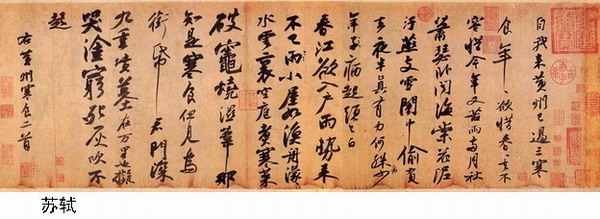 自我来黄州已過三寒
食年〻欲惜春春去不
容惜今年又苦雨兩月秋
蕭瑟卧聞海棠花泥
汙燕支雪闇中偷負
去夜半真有力何殊少
年子病起頭已白
春江欲入户雨勢来
不已雨小屋如漁舟濛〻
水雲裏空庖煮寒菜
破竈燒濕葦那
知是寒食但見烏
銜帋君門深
九重墳墓在万里也擬
哭塗窮死灰吹不
起
右黄州寒食二首
苏轼